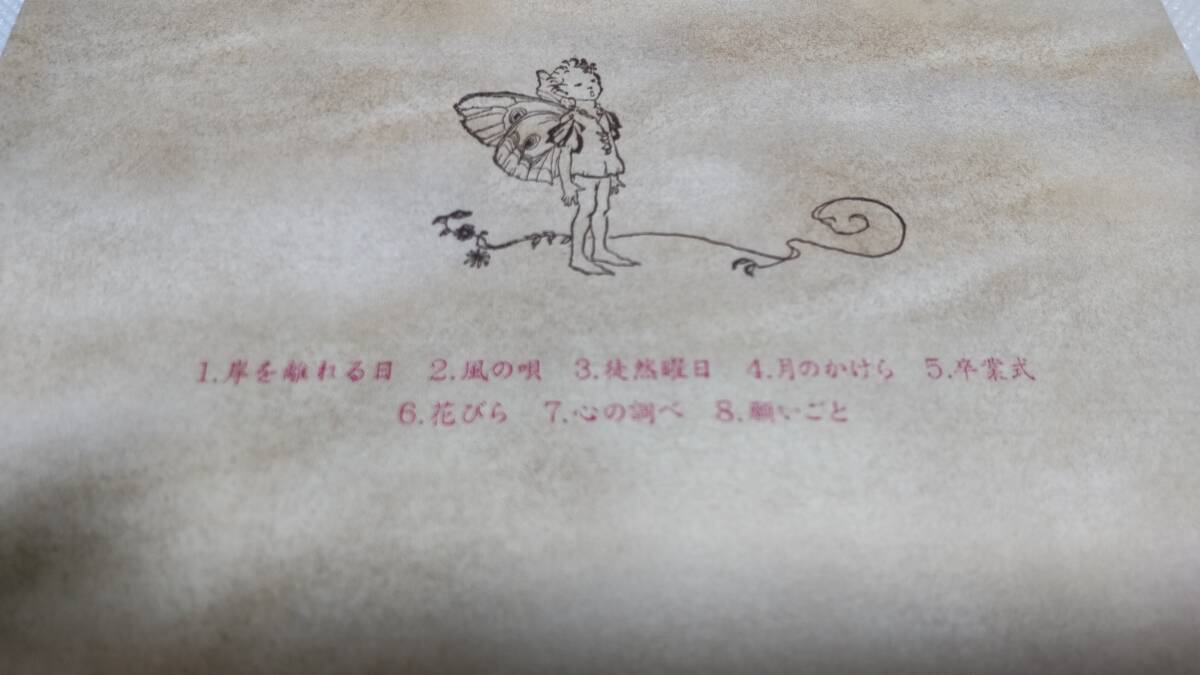 1.岸を離れる日 2.風の唄 3.徒然曜日 4.月のかけら 5.卒業式
6.花びら 7.心の調べ 8.願いごと